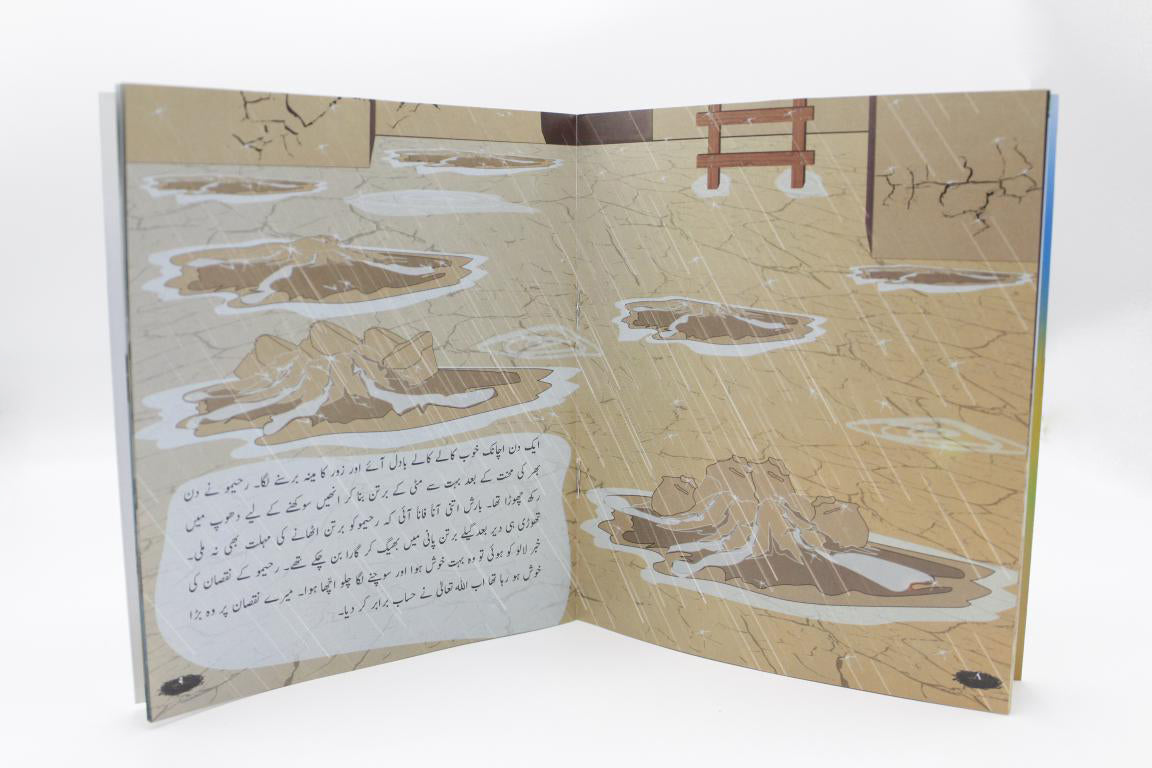 ایک دن اچانک خوب کالے کالے بادل آئے اور زور کا مینہ برسنے لگا۔ رحیمو نے دن
بھر کی محنت کے بعد بہت سے مٹی کے برتن بنا کر انھیں سوکھنے کے لیے دھوپ میں
رکھ چھوڑا تھا۔ بارش اتنی آناً فاناً آئی کہ رحیمو کو برتن اٹھانے کی مہلت بھی نہ ملی۔
تھوڑی ہی دیر بعد گیلے برتن پانی میں بھیگ کر گارا بن چکے تھے۔ رحیمو کے نقصان کی
خبر لالو کو ہوئی تو وہ بہت خوش ہوا اور سوچنے لگا چلو اچھا ہوا۔ میرے نقصان پر وہ بڑا
خوش ہو رہا تھا اب اللہ تعالیٰ نے حساب برابر کر دیا۔
۸